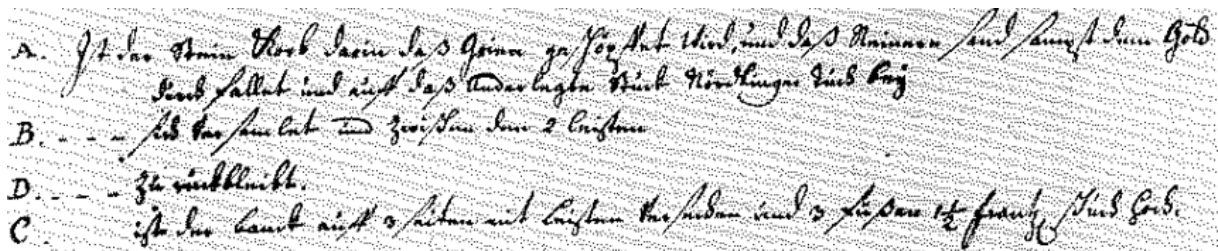 A. Ist der Stein Korb darin daß Grien geschöpffet wird, und daß Kleinere sand sampt dem Gold
durch fallet und auff daß underlegte Stuck Nördlinger tuch bey
B. - - - sich versamlet und zwischen den 2 leisten
D. - - - zu ruckbleibt.
C. ist der banck auff 3 seiten mit leisten versechen und 3 füßen 1½ frantz. schuch hoch.